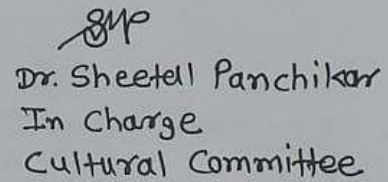 Dr. Sheetall Panchikar
In Charge
Cultural Committee